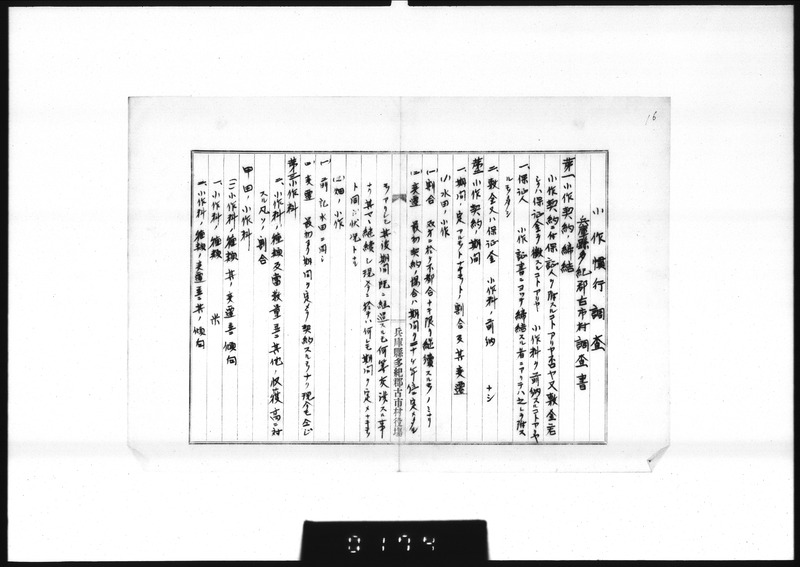 16
小作慣行調査
兵庫縣多紀郡古市村調査書
第一 小作契約ノ締結
小作契約ニ付保証人ヲ附スルコトアリヤ否ヤ又敷金若
シクハ保証金ヲ徴スルコトアリヤ 小作料ヲ前納スルコトアリヤ
一、保証人 小作証書ニヨツテ締結スル者ニアリテハ之レヲ附ス
ルモノ多シ
二、敷金又ハ保証金 小作料ノ前納 ナシ
第二 小作契約ノ期間
一、期間ノ定アルモノトナキモノトノ割合及其変遷
(1) 水田ノ小作
(イ) 割合 双方ニ於テ不都合ナキ限リ継続スルモノニナリ
(ロ) 変遷 最初契約ノ場合ハ期間ヲ
モノアリシモ其後期間既ニ経過スルモ何等交渉スル事
ナク其マヽ継続シ現今ニ於テハ何レモ期間ヲ定メナキモノ
ト同ジ状況トナル
(2) 畑ノ小作
(イ) 前記水田ニ同シ
(ロ) 変遷 最初ヨリ期間ヲ定メテ契約スルモノナク現今モ全シ
第三 小作料
一、小作料ノ種類及当数量並其他ノ収穫高ニ対
スル凡ソノ割合
甲 田ノ小作料
(一) 小作料ノ種類其ノ変遷並傾向
一、小作料ノ種類 米
二、小作料ノ種類ノ変遷並其ノ傾向
兵庫縣多紀郡古市村役場
0174